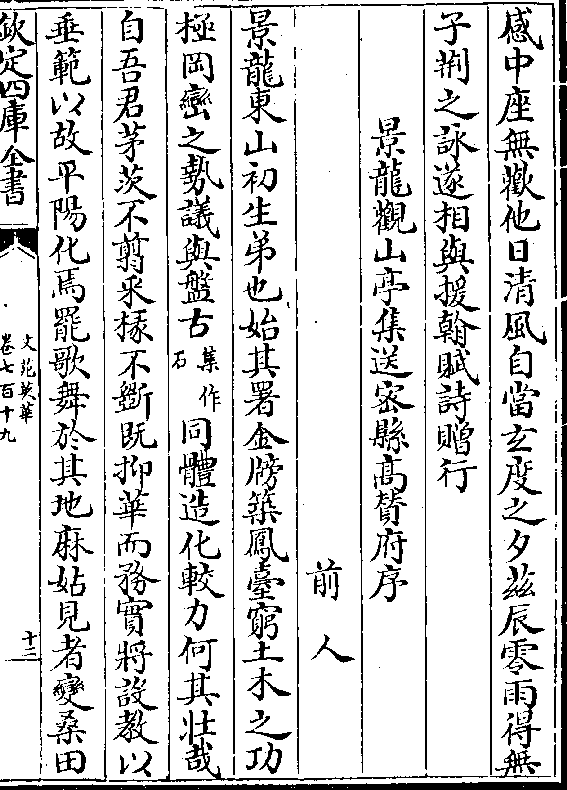 感中座無歡他日清風自當玄度之夕兹辰零雨得無
子荆之詠遂相與援翰賦詩贈行
景龍觀山亭集送密縣高贊府序
前人
景龍東山初生弟也始其署金牓築鳳臺窮土木之功
極岡巒之勢議與盤古集作石同體造化較力何其壯哉
自吾君茅茨不翦采椽不斵既抑華而務實將設教以
垂範以故平陽化焉罷歌舞於其地麻姑見者變桑田
欽定四庫全書
文苑英華
卷七百十九
十三